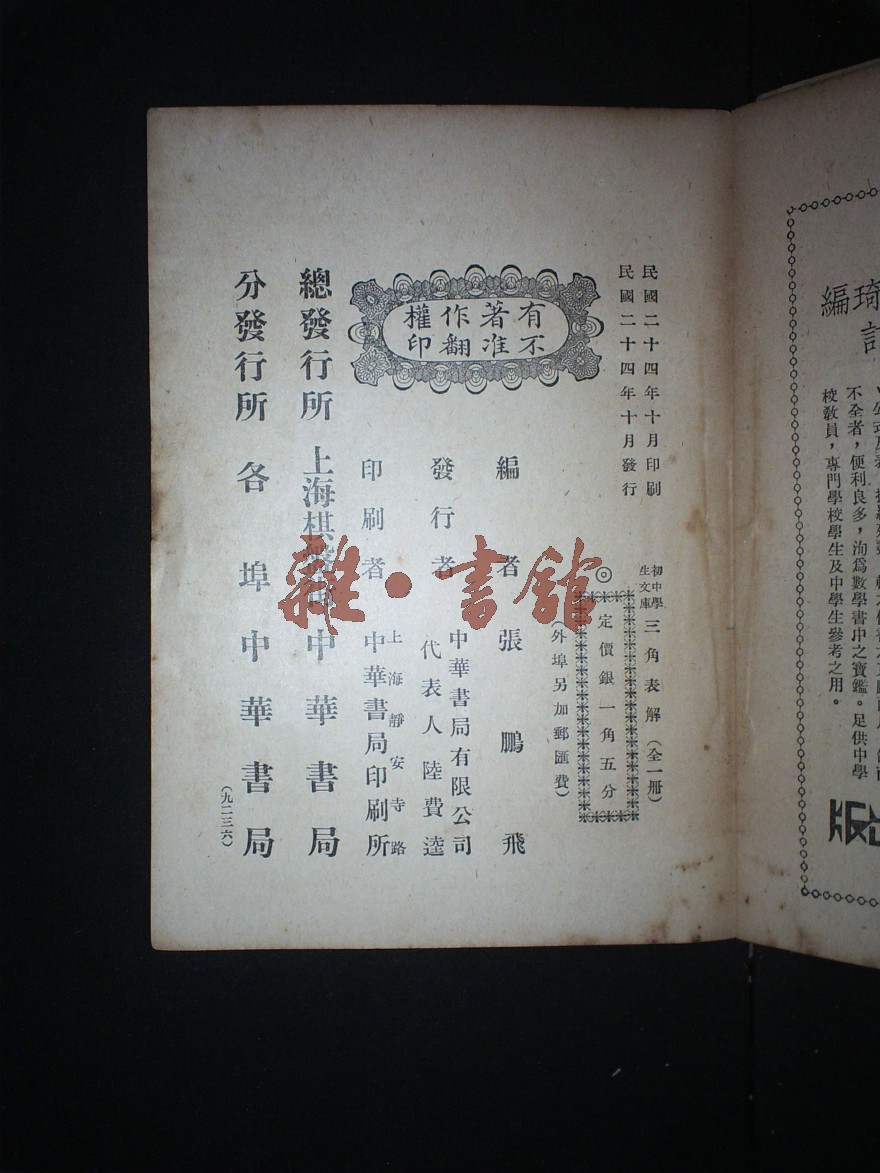 民國二十四年十月印刷
民國二十四年十月發行
初中學生文庫
三角表解（全一冊）
◎定價銀一角五分
（外埠另加郵匯費）
有著作權
不准翻印
編者 張鵬飛
發行者 中華書局有限公司
代表人陸費逵
印刷者 上海靜安寺路
中華書局印刷所
總發行所 上海棋盤街 中華書局
分發行所 各埠中華書局
（九二三六）
雜·書館
編
不全者，便利良多，洵爲數學書中之寶鑑。足供中學
校敎員，專門學校學生及中學生參考之用。
版